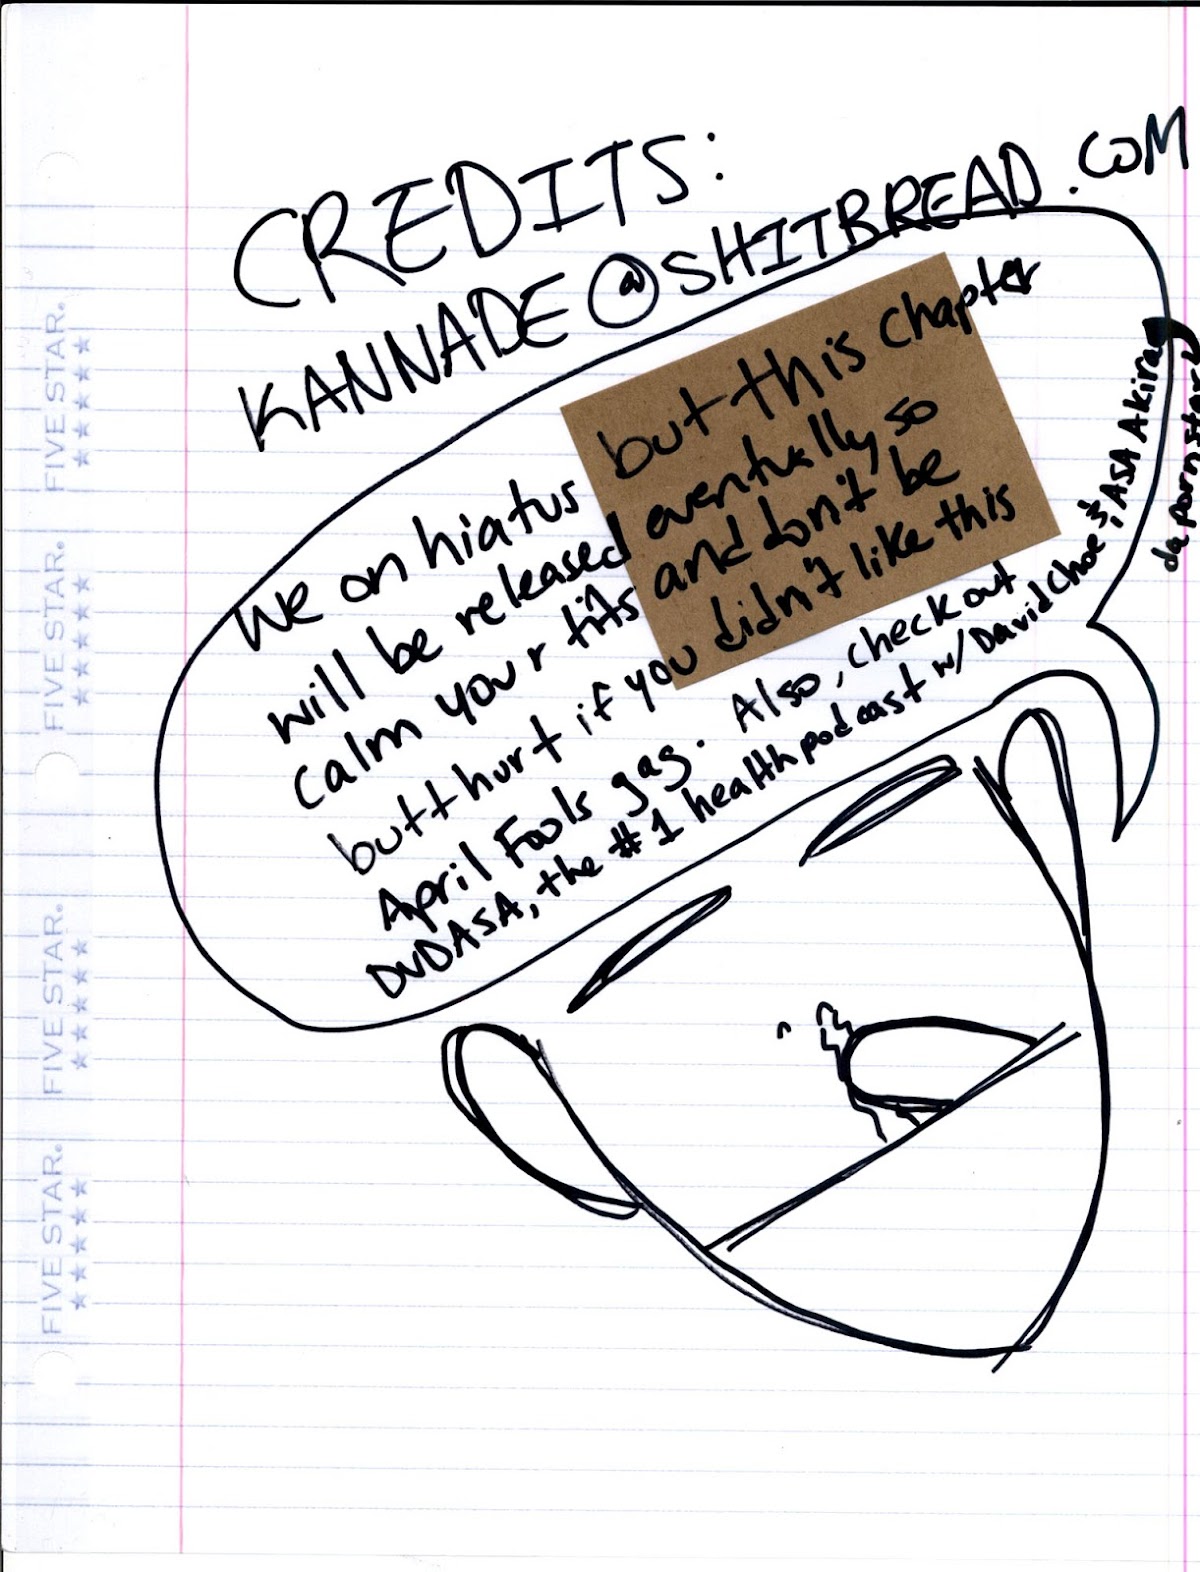 CREDITS:
KANNADE@SHITBREAD.COM
We on hiatus but this chapter
will be released eventually, so
calm your tits and don't be
butthurt if you didn't like this
April Fools gag. Also, check out
DVDASA, the #1 health podcast w/ David Choe & ASA Akira
da pornstar
FIVE STAR.
FIVE STAR.
FIVE STAR.
FIVE STAR.